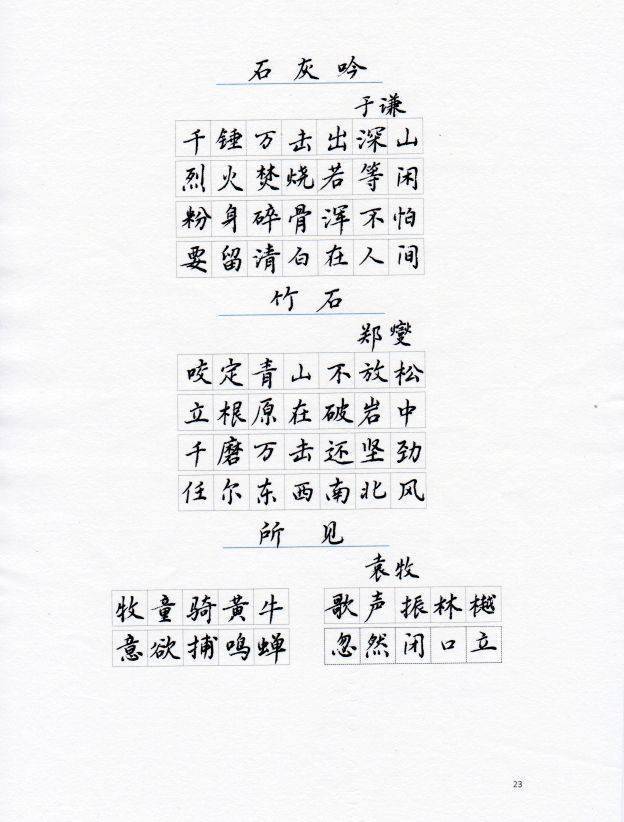 石灰吟
于谦
千锤万击出深山
烈火焚烧若等闲
粉身碎骨浑不怕
要留清白在人间
竹石
郑燮
咬定青山不放松
立根原在破岩中
千磨万击还坚劲
任尔东西南北风
所见
袁牧
牧童骑黄牛 歌声振林樾
意欲捕鸣蝉 忽然闭口立
23